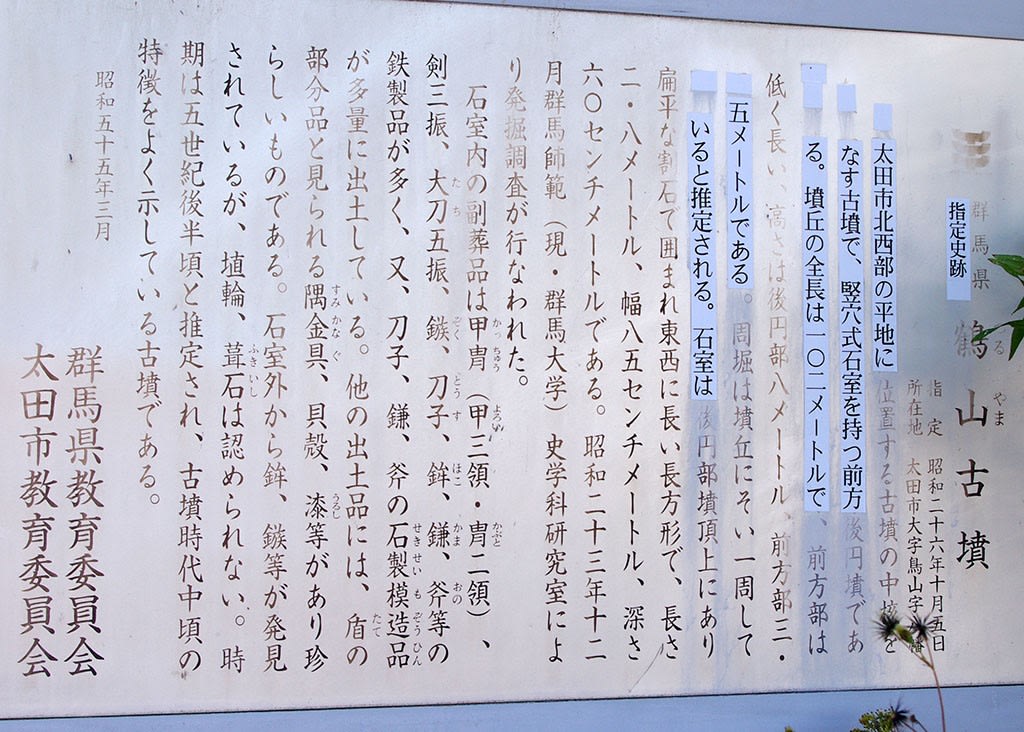 群馬県
指定史跡
鶴山古墳
指定 昭和二十六年十月五日
所在地 太田市大字鳥山字
太田市北西部の平地に位置する古墳の中核を
なす古墳で、竪穴式石室を持つ前方後円墳であ
る。墳丘の全長は一〇二メートルで、前方部は
低く長い、高さは後円部八メートル、前方部三・
五メートルである。周堀は墳丘にそい一周して
いると推定される。石室は後円部墳頂上にあり
扁平な割石で囲まれ東西に長い長方形で、長さ
二・八メートル、幅八五センチメートル、深さ
六〇センチメートルである。昭和二十三年十二
月群馬師範（現・群馬大学）史学科研究室によ
り発掘調査が行なわれた。
石室内の副葬品は甲冑（甲三領・冑二領）、
剣三振、大刀五振、鏃、刀子、鉾、鎌、斧等の
鉄製品が多く、又、刀子、鎌、斧の石製模造品
が多量に出土している。他の出土品には、盾の
部分品と見られる隅金具、貝殻、漆等があり珍
らしいものである。石室外から鉾、鏃等が発見
されているが、埴輪、葺石は認められない。時
期は五世紀後半頃と推定され、古墳時代中頃の
特徴をよく示している古墳である。
昭和五十五年三月
群馬県教育委員会
太田市教育委員会